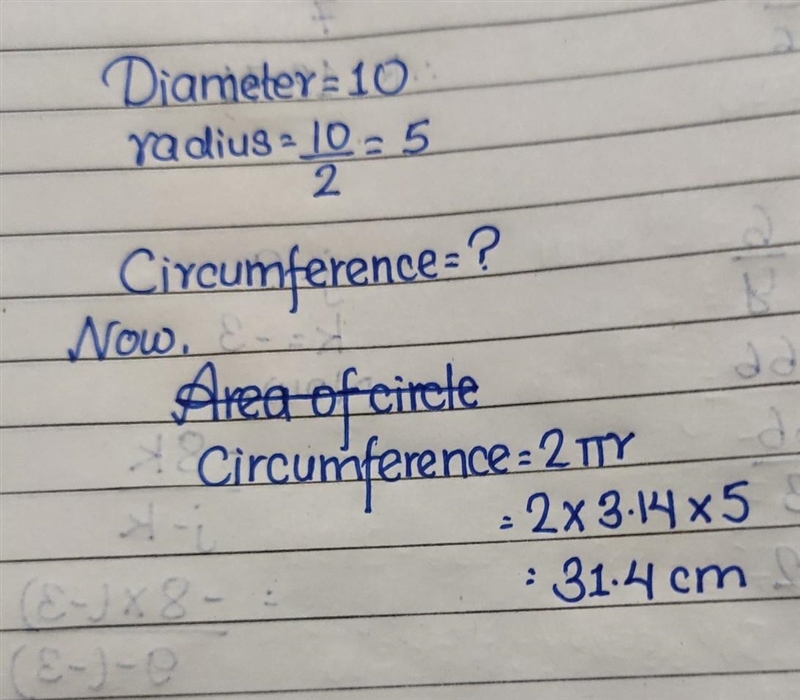 Diameter = 10
radius = 10/2 = 5
Circumference = ?
Now.
Area of circle
Circumference = 2πr
= 2 × 3.14 × 5
: 31.4 cm